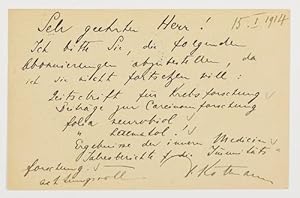 15. I 1914
Sehr geehrter Herr!
Ich bitte Sie, die folgenden
Abonnierungen abzubestellen, da
ich sie nicht fortsetzen will:
Zeitschrift für Krebsforschung
Beiträge zur Carcinomforschung
folia neurobiol
" haematol!
Ergebnisse der inneren Medicin
Jahresberichte f. die Immunitäts
forschung
achtungsvoll